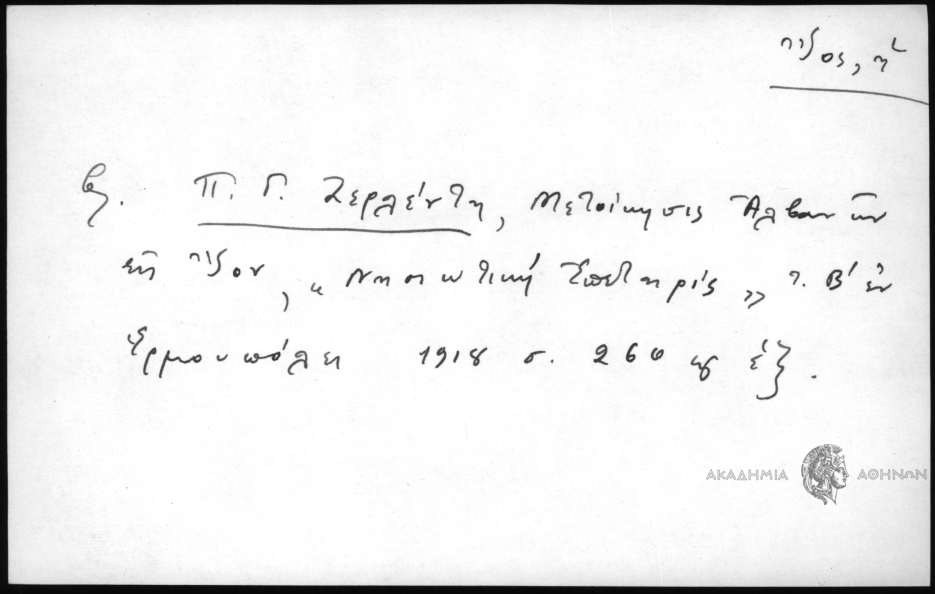 Ἴος, ἡ
βλ. Π. Γ. Ζερλέντη, Μετοίκησις Ἀλβανῶν
εἰς Ἴον, "Νησιωτική Ἐπετηρίς" τ. Β' ἐν
Ἑρμουπόλει 1918 σ. 260 καὶ ἑξ.
ΑΚΑΔΗΜΙΑ ΑΘΗΝΩΝ